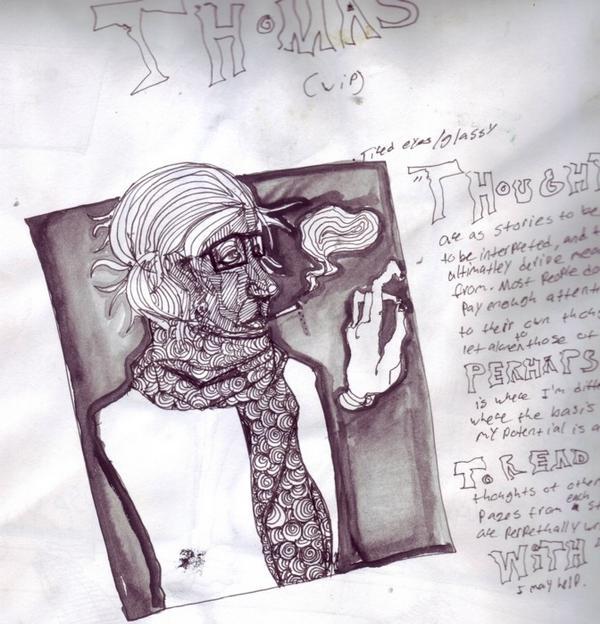 THOMAS
(WIP)
Tired eyes/glassy
"THOUGHT
are as stories to be
to be interpreted, and
ultimatley derive mea
from. Most People do
Pay enough attent
to their own thou
let alone to those of
PERHAPS
is where I'm diffe
where the basis
my Potential is a
To READ
thoughts of other
Pages from each st
are perpetually wr
WITH
I may help.